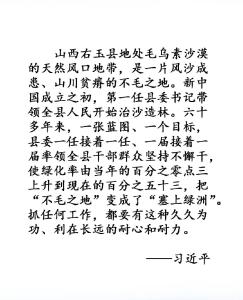 山西右玉县地处毛乌素沙漠
的天然风口地带，是一片风沙成
患、山川贫瘠的不毛之地。新中
国成立之初，第一任县委书记带
领全县人民开始治沙造林。六十
多年来，一张蓝图、一个目标，
县委一任接着一任、一届接着一
届率领全县干部群众坚持不懈干，
使绿化率由当年的百分之零点三
上升到现在的百分之五十三，把
“不毛之地”变成了“塞上绿洲”。
抓任何工作，都要有这种久久为
功、利在长远的耐心和耐力。
——习近平